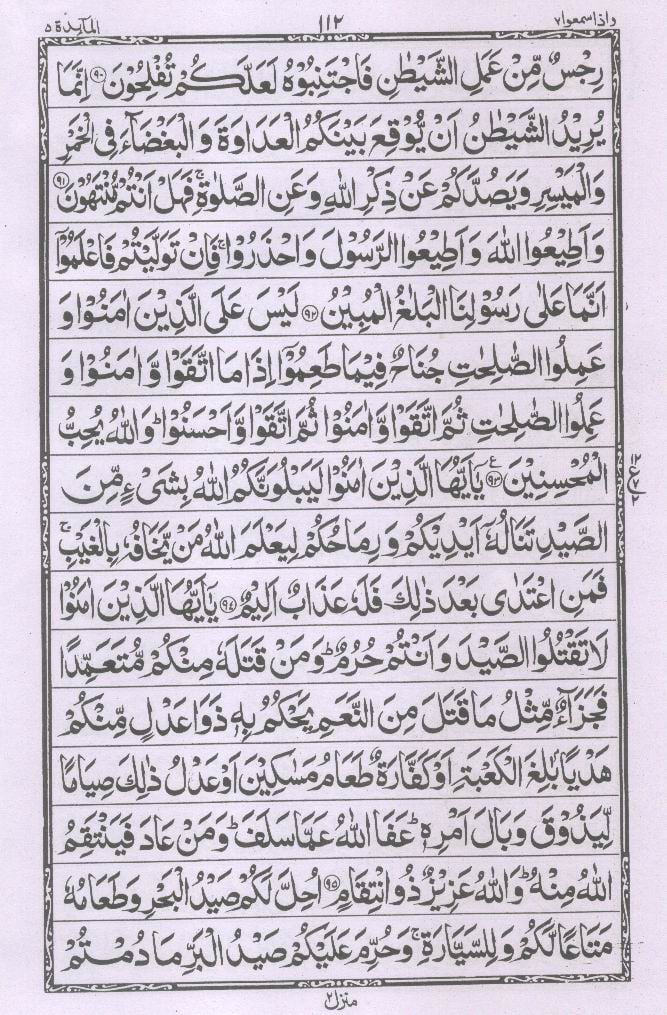 واذا سمعوا ٧ ١١٢ المآئدة ٥
رِجْسٌ مِّنْ عَمَلِ الشَّيْطٰنِ فَاجْتَنِبُوْهُ لَعَلَّكُمْ تُفْلِحُوْنَ ﴿٩٠﴾ اِنَّمَا
يُرِيْدُ الشَّيْطٰنُ اَنْ يُّوْقِعَ بَيْنَكُمُ الْعَدَاوَةَ وَالْبَغْضَآءَ فِى الْخَمْرِ
وَالْمَيْسِرِ وَيَصُدَّكُمْ عَنْ ذِكْرِ اللّٰهِ وَعَنِ الصَّلٰوةِ ۚ فَهَلْ اَنْتُمْ مُّنْتَهُوْنَ ﴿٩١﴾
وَاَطِيْعُوا اللّٰهَ وَاَطِيْعُوا الرَّسُوْلَ وَاحْذَرُوْا ۚ فَاِنْ تَوَلَّيْتُمْ فَاعْلَمُوْٓا
اَنَّمَا عَلٰى رَسُوْلِنَا الْبَلٰغُ الْمُبِيْنُ ﴿٩٢﴾ لَيْسَ عَلَى الَّذِيْنَ اٰمَنُوْا وَ
عَمِلُوا الصّٰلِحٰتِ جُنَاحٌ فِيْمَا طَعِمُوْٓا اِذَا مَا اتَّقَوْا وَّاٰمَنُوْا وَ
عَمِلُوا الصّٰلِحٰتِ ثُمَّ اتَّقَوْا وَّاٰمَنُوْا ثُمَّ اتَّقَوْا وَّاَحْسَنُوْا ؕ وَاللّٰهُ يُحِبُّ
الْمُحْسِنِيْنَ ﴿٩٣﴾ ع يٰٓاَيُّهَا الَّذِيْنَ اٰمَنُوْا لَيَبْلُوَنَّكُمُ اللّٰهُ بِشَىْءٍ مِّنَ
الصَّيْدِ تَنَالُهٗٓ اَيْدِيْكُمْ وَرِمَاحُكُمْ لِيَعْلَمَ اللّٰهُ مَنْ يَّخَافُهٗ بِالْغَيْبِ ۚ
فَمَنِ اعْتَدٰى بَعْدَ ذٰلِكَ فَلَهٗ عَذَابٌ اَلِيْمٌ ﴿٩٤﴾ يٰٓاَيُّهَا الَّذِيْنَ اٰمَنُوْا
لَا تَقْتُلُوا الصَّيْدَ وَاَنْتُمْ حُرُمٌ ؕ وَمَنْ قَتَلَهٗ مِنْكُمْ مُّتَعَمِّدًا
فَجَزَآءٌ مِّثْلُ مَا قَتَلَ مِنَ النَّعَمِ يَحْكُمُ بِهٖ ذَوَا عَدْلٍ مِّنْكُمْ
هَدْيًۢا بٰلِغَ الْكَعْبَةِ اَوْ كَفَّارَةٌ طَعَامُ مَسٰكِيْنَ اَوْ عَدْلُ ذٰلِكَ صِيَامًا
لِّيَذُوْقَ وَبَالَ اَمْرِهٖ ؕ عَفَا اللّٰهُ عَمَّا سَلَفَ ؕ وَمَنْ عَادَ فَيَنْتَقِمُ
اللّٰهُ مِنْهُ ؕ وَاللّٰهُ عَزِيْزٌ ذُو انْتِقَامٍ ﴿٩٥﴾ اُحِلَّ لَكُمْ صَيْدُ الْبَحْرِ وَطَعَامُهٗ
مَتَاعًا لَّكُمْ وَلِلسَّيَّارَةِ ۚ وَحُرِّمَ عَلَيْكُمْ صَيْدُ الْبَرِّ مَا دُمْتُمْ
منزل ٢